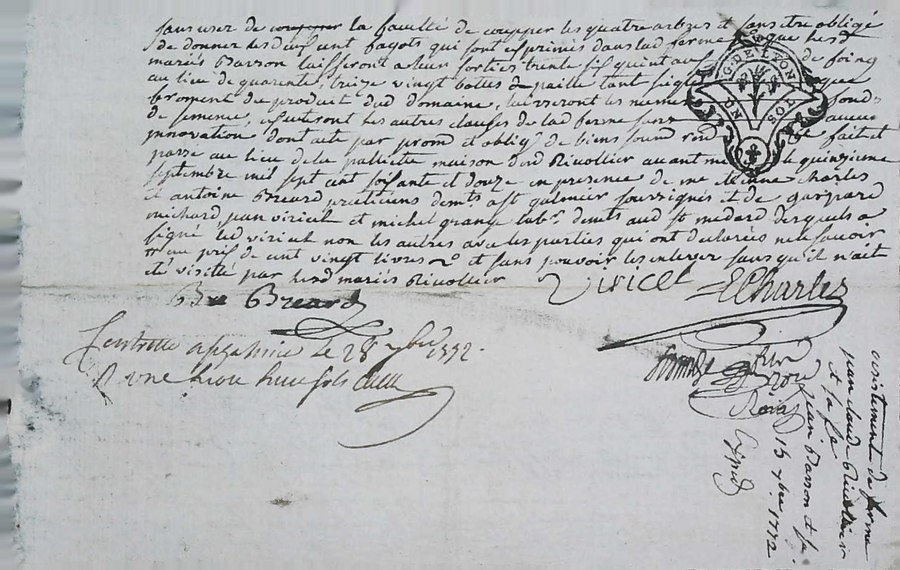 sans user de coupper la faculté de coupper les quatre arbres et sans etre obligé
de donner les dix cent fagots qui sont exprimés dans lad ferme que lesd
mariés Basson laisseront a leur sorties trente six quintaux de foing
au lieu de quarente, treize vingt bottes de paille tant seigle que
froment du produit dud domaine, laisseront les memes fonds
de semence, executeront les autres clauses de lad ferme sans aucune
innovation dont acte par prom et oblig de biens soum ren fait et
passé au lieu de la palliette maison dud Rivollier avant me le quinzieme
septembre mil sept cent soixante et douze en presence de me etienne charles
et antoine Breard praticiens demts a st galmier soussignés et de gaspard
michard jean viricel et michel grange lab.rs demts aud st medard desquels a
signé led viricel non les autres avec les parties qui ont declarées ne le savoir
au prix de cent vingt livres et sans pouvoir les enlever sans qu'il n'ait
eté visitté par lesd mariés Rivollier
Viricel
ECharles
Breard
Controllé a st galmier le 28 7bre 1772.
R une livre huit sols
G. DE LYON
SOL
jean Basson et sa
15 7bre 1772
desistement de ferme
jean claude Rivollier
et sa fe